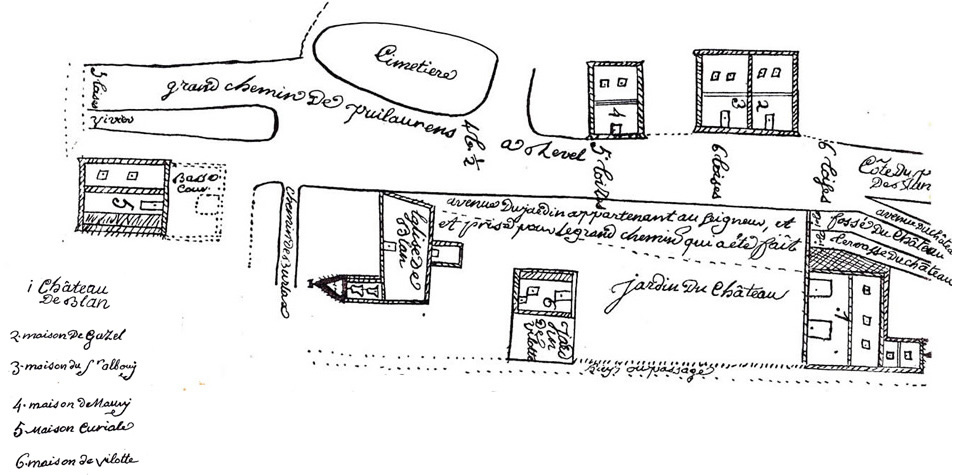 Cimetiere
grand chemin De Puilaurens
vivier
Basse
Cour
5
4 to. ½
a Level
4
5 toises
3
2
6 toises
6 toises
Cote du
Des Blan
avenue du château
fossé du Château
terrasse du château
avenue du jardin appartenant au Seigneur, et
et prise pour le grand chemin qui a été fait
Chemin De Burlax
l'église De
Blan
jardin Du Château
6
Jardin
De
vilotte
1
ou passage
1 Château
De Blan
2. maison De Gazel
3. maison du Sr albouy
4. maison de Maury
5 Maison Curiale
6. maison de vilotte